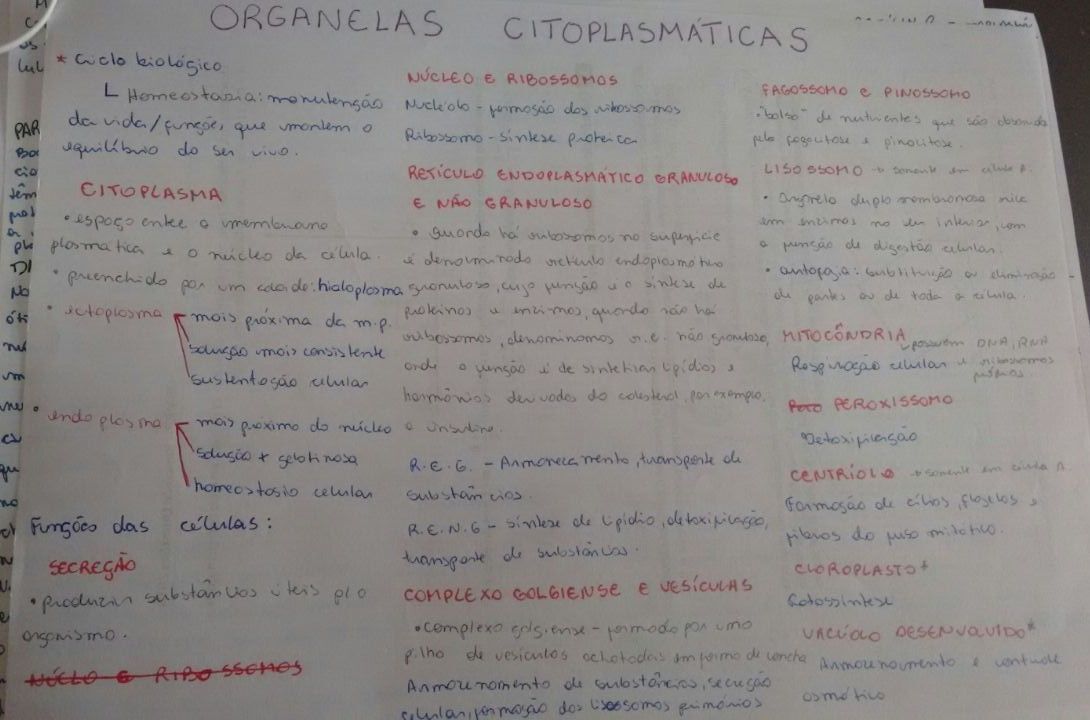 ORGANELAS CITOPLASMÁTICAS
* Ciclo biológico
Homeostasia: manutenção
da vida/funções, que mantem o
equilíbrio do ser vivo.
CITOPLASMA
• espaço entre a membrana
plasmática e o núcleo da célula.
• preenchido por um coloide: hialoplasma
• ectoplasma
mais próxima da m.p.
solução mais consistente
sustentação celular
• endoplasma
mais proximo do núcleo
solução + gelatinosa
homeostasia celular
Funções das células:
SECREÇÃO
• produzir substâncias úteis p/ o
organismo.
NÚCLEO E RIBOSSOMOS
NÚCLEO E RIBOSSOMOS
Nucléolo - formação dos ribossomos
Ribossomo - síntese proteica
RETÍCULO ENDOPLASMÁTICO GRANULOSO
E NÃO GRANULOSO
• quando há ribossomos na superfície
é denominado retículo endoplasmático
granuloso, cuja função é a síntese de
proteínas e enzimas, quando não há
ribossomos, denominamos r.e. não granuloso,
onde a função é de sintetizar lipídios e
hormônios derivados do colesterol, por exemplo,
a insulina.
R.E.G. - Armazenamento, transporte de
substâncias.
R.E.N.G - síntese de lipídio, detoxificação,
transporte de substâncias.
COMPLEXO GOLGIENSE E VESÍCULAS
• complexo golgiense - formado por uma
pilha de vesículas achatadas em forma de concha
Armazenamento de substâncias, secreção
celular, formação dos lisossomos primários
FAGOSSOMO E PINOSSOMO
"bolsa" de nutrientes que são
pela fagocitose e pinocitose.
LISOSSOMO → somente em célula A.
• Organela duplo membranosa rica
em enzimas no seu interior, com
a função de digestão celular.
• autofagia: substituição ou eliminação
de partes ou de toda a célula.
MITOCÔNDRIA
possuem DNA, RNA
e ribossomos
Respiração celular
PEROXISSOMO
Detoxificação
CENTRÍOLO → somente em célula A.
Formação de cílios, flagelos e
fibras do fuso mitótico.
CLOROPLASTO*
Fotossíntese
VACÚOLO DESENVOLVIDO*
Armazenamento e controle
osmótico